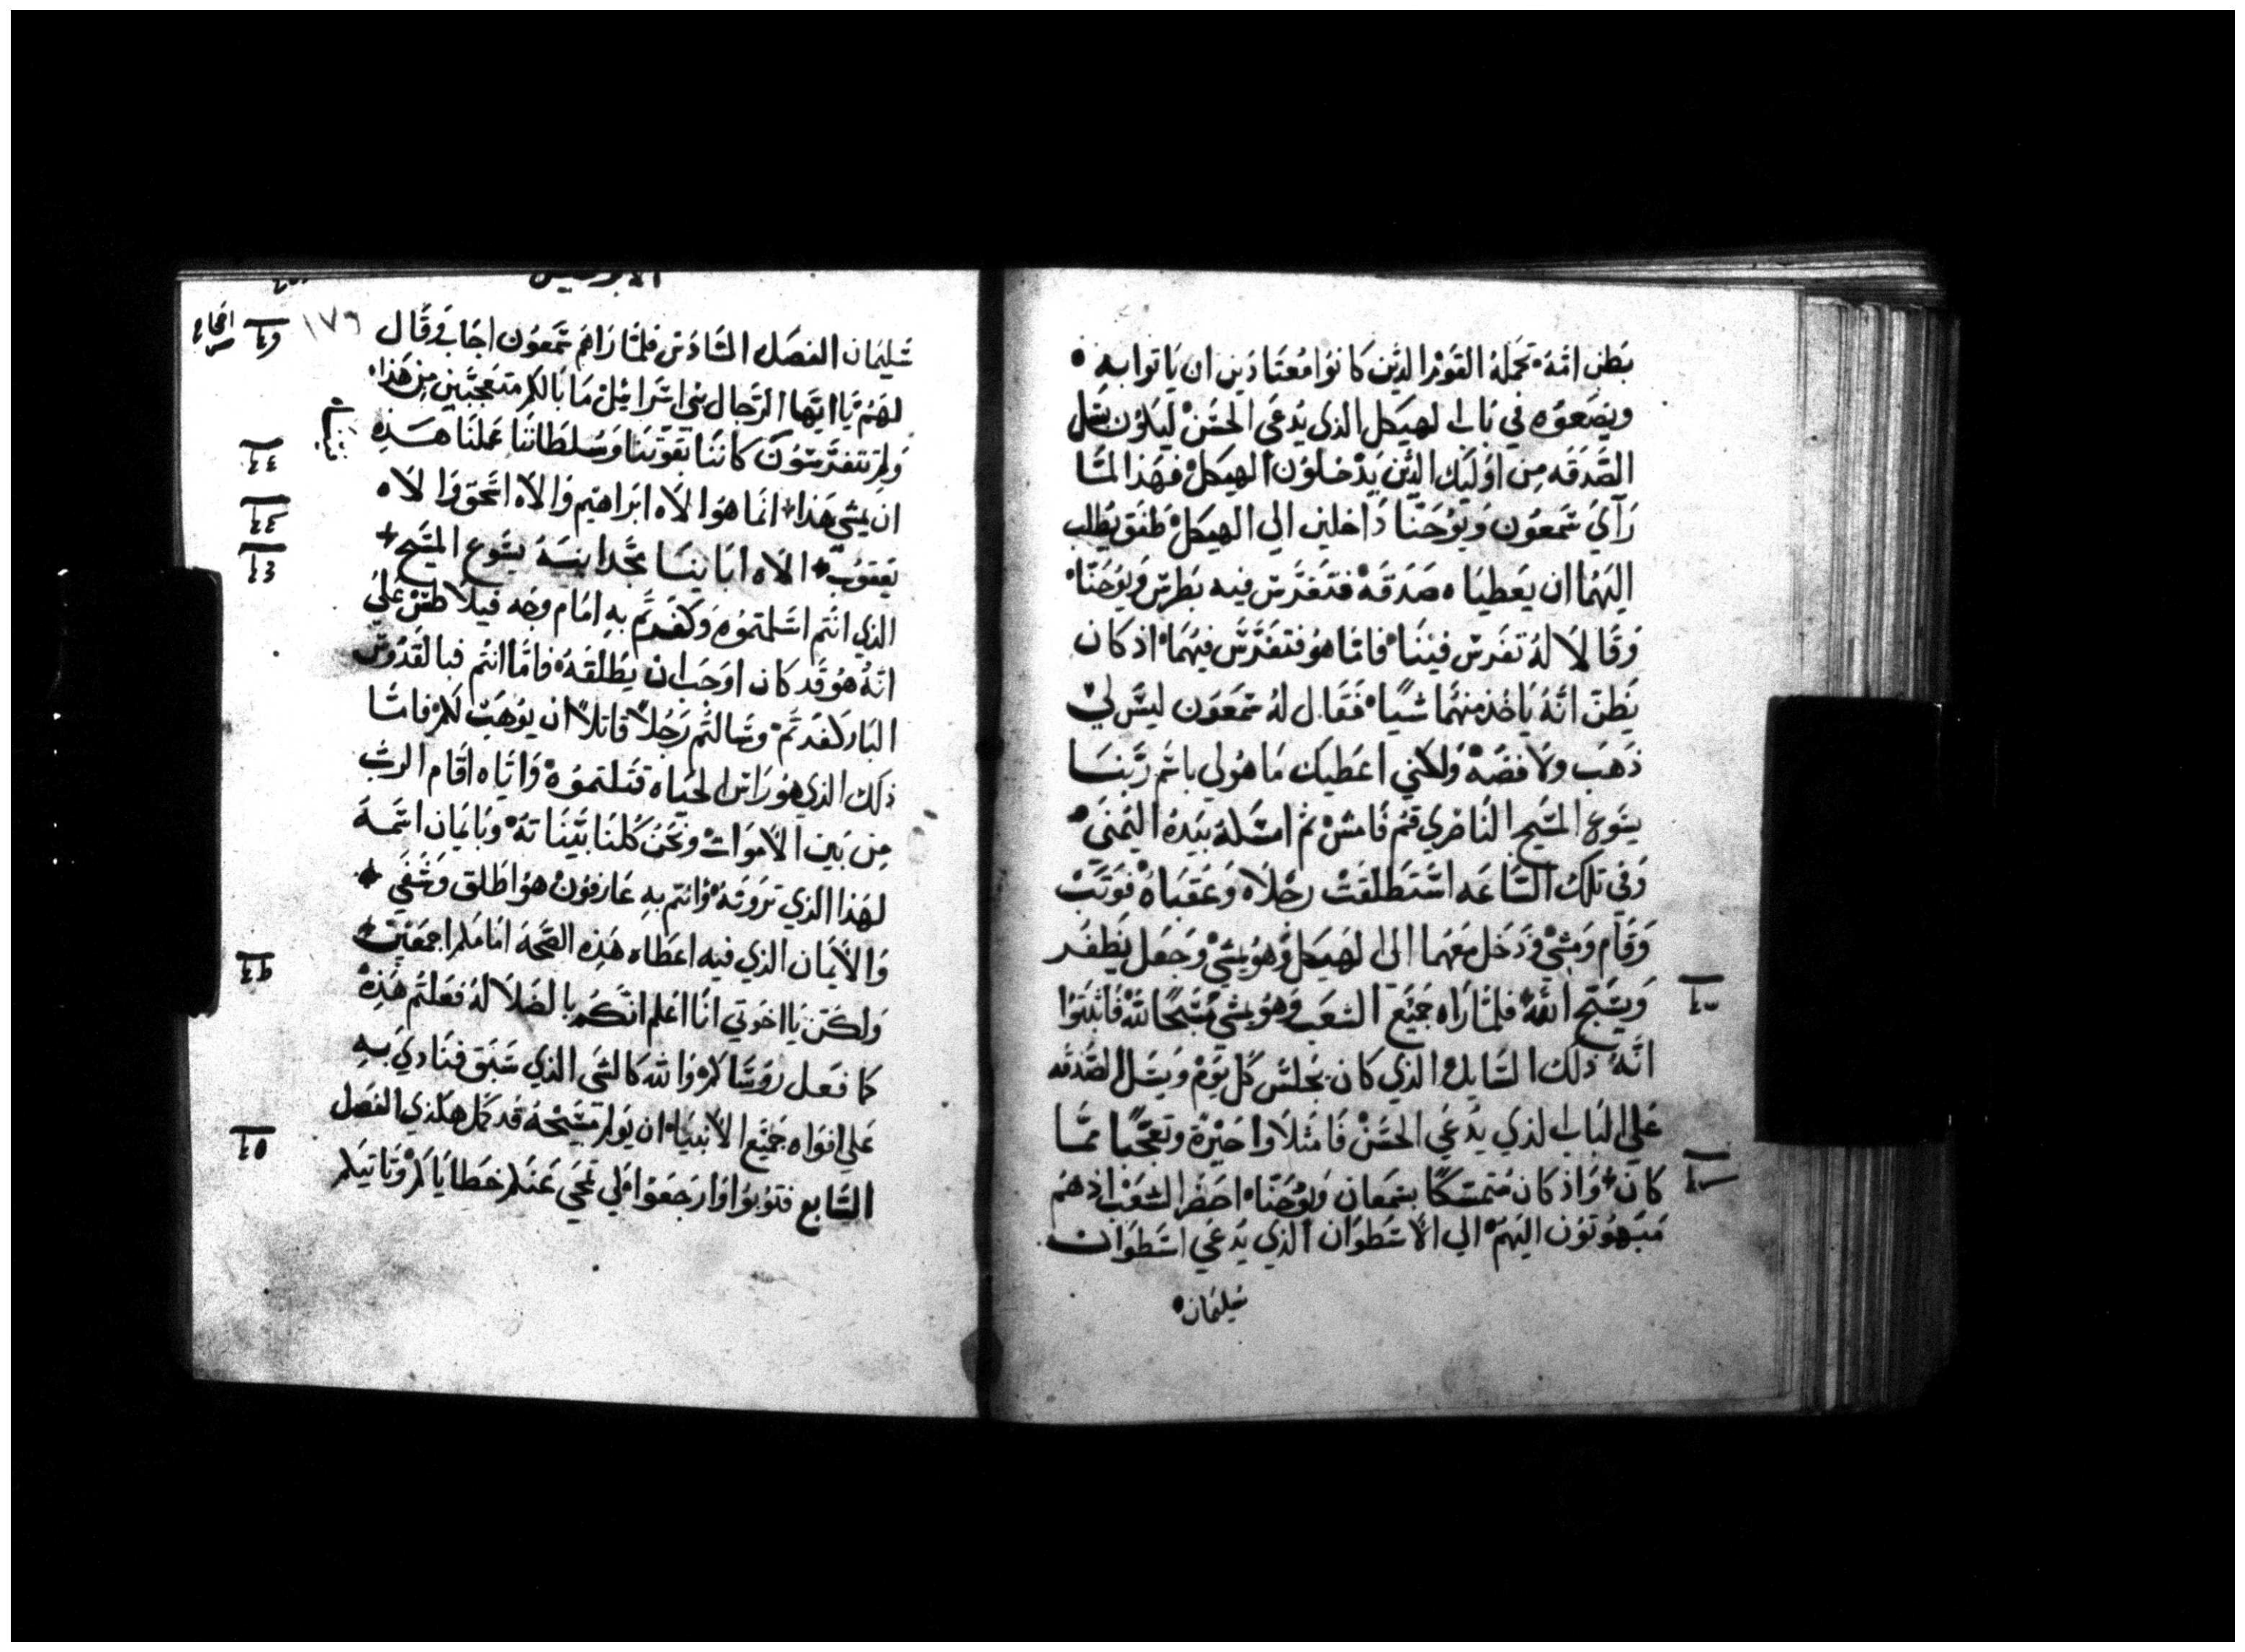 بَطن امّهُ تحملهُ القوم الذين كانوا معتادين ان ياتوا به
ويضعوه في باب الهيكل الذي يُدعَي الحسَنْ ليكون يسَل
الصَّدقه من اوليك الذين يَدْخلون الهيكل فهذا لمّا
رَآيَ شمعون ويُوحَنّا دَاخلين الي الهيكل طفق يطلب
اليهما ان يعطياه صَدَقهْ فتفرّس فيه بطرس ويوحَنّا
وقَالا لهُ تفرس فيننا فامّا هو فتفرَّسَ فيهما اذ كان
يَظنّ انّهُ ياخذ منهُما شياً فقال لهُ شمعون ليسَ لي
ذهَب ولا فضّهْ ولاكني اعَطيك ما هو لي باسم ربّنا
يسوع المسَيح الناصري قم فامش ثم امسَكهُ بيدهُ اليمني
وفي تلكَ السَّاعه استطلقت رجلاه وعقباه فوَثَبْ
وقام ومشي ودَخل معهما الي الهيكل وهو يمشي وجعَل يَطفر
ويسَبّح اللهُ فلمّا رَاه جميع الشعب وهو يمشي مسَبّحًا للهْ فاثبتوا
انّهُ ذلك السَّايل الذي كان يجلسَ كل يوم ويسَل الصَّدقه
علي الباب الذي يدعَي الحسَنْ فامتلاوا حَيْرة وتعجّبًا ممّا
كان واذ كان مُتمسّكًا بشمعان ويوحَنّا احضر الشعب اذ هم
مبهوتون اليهم الي الاسَطوان الذي يدعَي اسَطوان
سَليمان
الابركسيس
١٧٦
سَليمان الفصَل السَّادس فلمّا رَاهم شمَعون اجَاب وقال
لهَمُ يا ايّها الرّجال بني اسَرَاييل ما بالكم متعجّبين من هذا
ولم تتفرّسَون كاننا بقوّتنا وسُلطاننا عملنا هَذه
ان يمشي هَذا انما هوُ الاه ابرَاهيم والاه اسَحق والاه
يَعقوُب الاه ابَاينا مجّد ابنهُ يسَوع المسَيح
الذي انتم اسَلمتموُه وكفرتم به امام وجه فيلاطسْ عَلي
انّهُ هوُ قد كان اوجَب ان يُطلقهُ فامّا انتم فبالقدّوس
البَار كفرتم وسَالتم رَجُلاً قاتلاً ان يوُهَبْ لكم فامّا
ذلك الذي هوُ رَاسَ الحيَاه قتلتموُه وايّاه اقام الربّ
من بَين الاموَاتْ ونحنُ كلنا بيّناتهُ وبَايمان اسَمهَ
لهذا الذي ترَونَهُ وَانتم به عَارفونْ هوُ اطَلق وشفَي
وَالايمان الذي فيه اعَطاه هَذه الصّحَهَ امامكم اجمعَين
ولكنّ يا اخوَتي انا اعْلم انّكم بالضَلالهُ فعَلتم هَذهْ
كما فعَل روُسَّاكم والله كالشي الذي سَبَق فنادي به
عَلي افوَاه جميَع الانبياء ان يَولم مسَيحهُ قد كمّل هكذي الفصَل
السَّابع فتوُبوُا وَارجعَوا لكي تمحَي عَنكم خطاياكم وتاتيكم